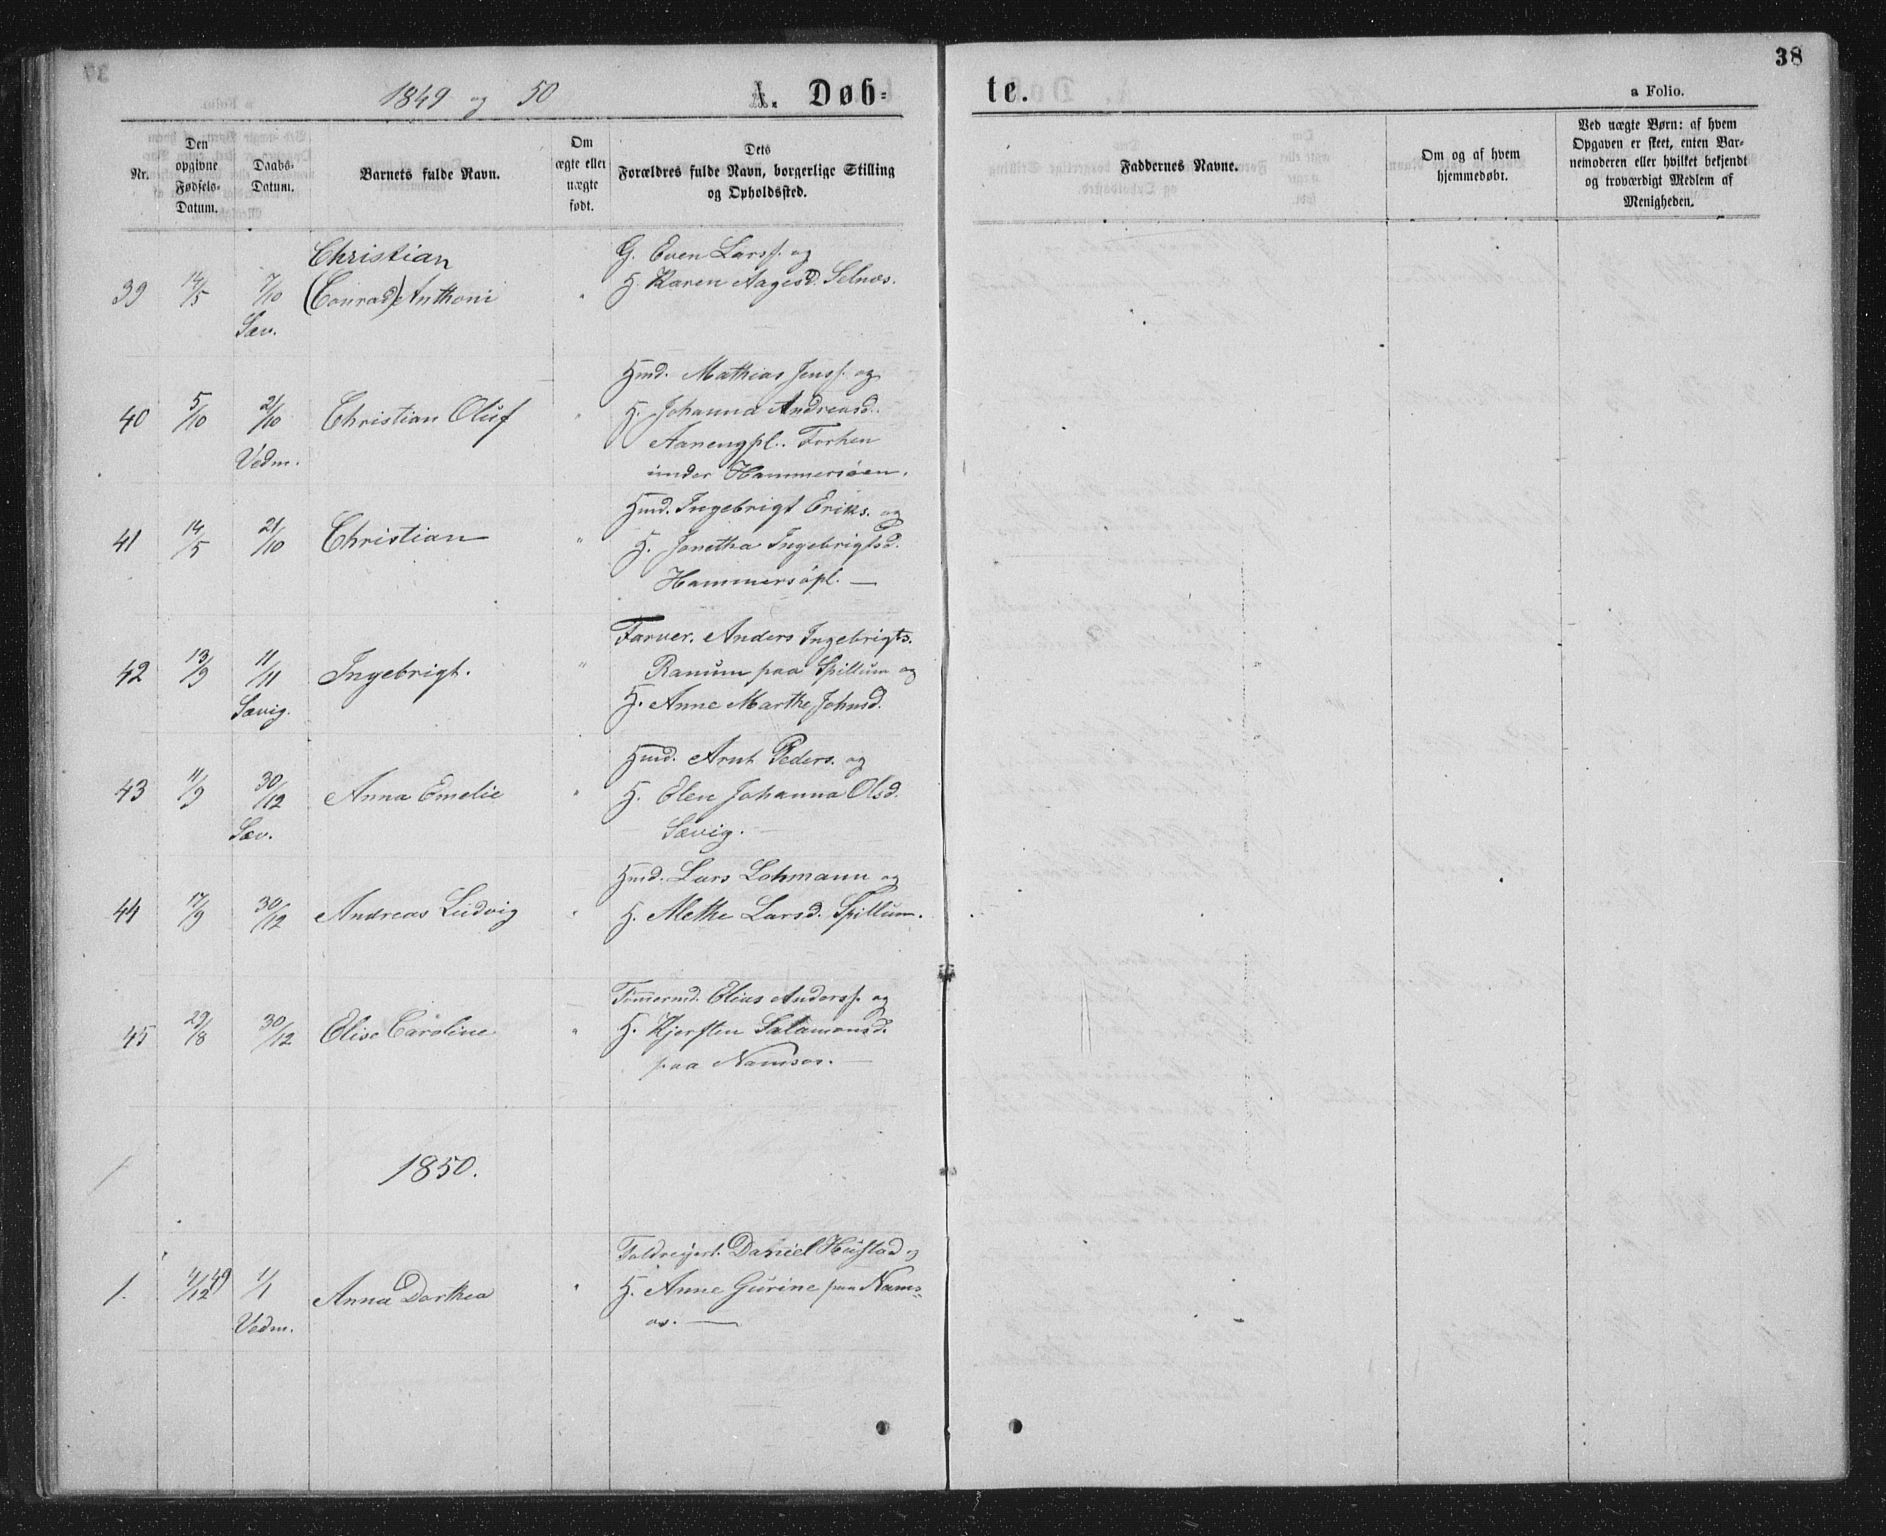 38
1849 og 50
A. Døb-
te.
a Folio.
Nr.
Den
opgivne
Fødsels-
Datum.
Daabs-
Datum.
Barnets fulde Navn.
Om
ægte eller
uægte
født.
Dets
Forældres fulde Navn, borgerlige Stilling
og Opholdssted.
Faddernes Navne.
Om og af hvem
hjemmedøbt.
Ved uægte Børn: af hvem
Opgaven er skeet, enten Bar-
nemoderen eller hvilket bekjendt
og troværdigt Medlem af
Menigheden.
Christian
39 14/5 7/10 (Conrad) Anthoni "
Sæv.
G. Even Larss. og
H. Karen Aagesd. Selnæs.
40 5/10 21/10 Christian Oluf "
Vedm.
Hmd. Mathias Jenss. og
H. Johanna Andreasd.
Aanengpl. Forhen
under Hammersøen.
41 14/5 21/10 Christian "
Hmd. Ingebrigt Eriks. og
H. Janetha Ingebrigtsd.
Hammersøpl. —
42 13/9 11/11 Ingebrigt. "
Sævig.
Farver. Anders Ingebrigts.
Ranum paa Spillum og
H. Anne Marthe Johnsd.
43 11/9 30/12 Anna Emelie "
Sæv.
Hmd. Arnt Peders. og
H. Elen Johanna Olsd.
Sævig.
44 17/9 30/12 Andreas Ludvig "
Hmd. Lars Lohmann og
H. Alethe Larsd. Spillum.
45 29/8 30/12 Elise Caroline "
Tömermd. Elias Anderss. og
H. Kjersten Salamonsd.
paa Namsos. —
1850.
1. 4/12 49 1/1 Anna Dorthea "
Vedm.
Daniel Hustad og
H. Anne Gurine paa Nams-
os. —